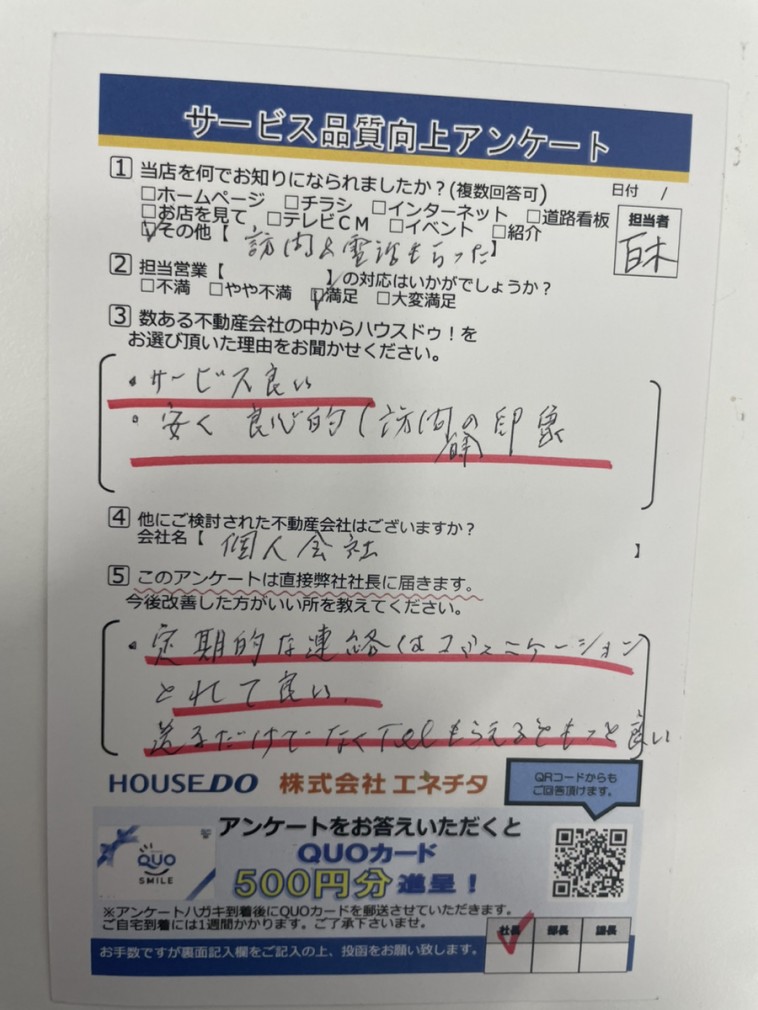 サービス品質向上アンケート
1 当店を何でお知りになられましたか？(複数回答可)
日付 /
□ホームページ □チラシ □インターネット □道路看板
□お店を見て □テレビCM □イベント □紹介
☑その他【訪問&電話もらった】
担当者
百木
2 担当営業【 】の対応はいかがでしょうか？
□不満 □やや不満 ☑満足 □大変満足
3 数ある不動産会社の中からハウスドゥ！を
お選び頂いた理由をお聞かせください。
・サービス良い
・安く 良心的(訪問の印象
4 他にご検討された不動産会社はございますか？
会社名【 個人会社 】
5 このアンケートは直接弊社社長に届きます。
今後改善した方がいい所を教えてください。
・定期的な連絡はコミュニケーション
とれて良い。
送るだけでなくTelもらえるともっと良い
HOUSEDO 株式会社 エネチタ
QRコードからも
ご回答頂けます。
アンケートをお答えいただくと
QUOカード
500円分 進呈！
QUO
SMILE
※アンケートハガキ到着後にQUOカードを郵送させていただきます。
ご自宅到着には1週間かかります。ご了承下さいませ。
社長 部長 議長
お手数ですが裏面記入欄をご記入の上、投函をお願い致します。